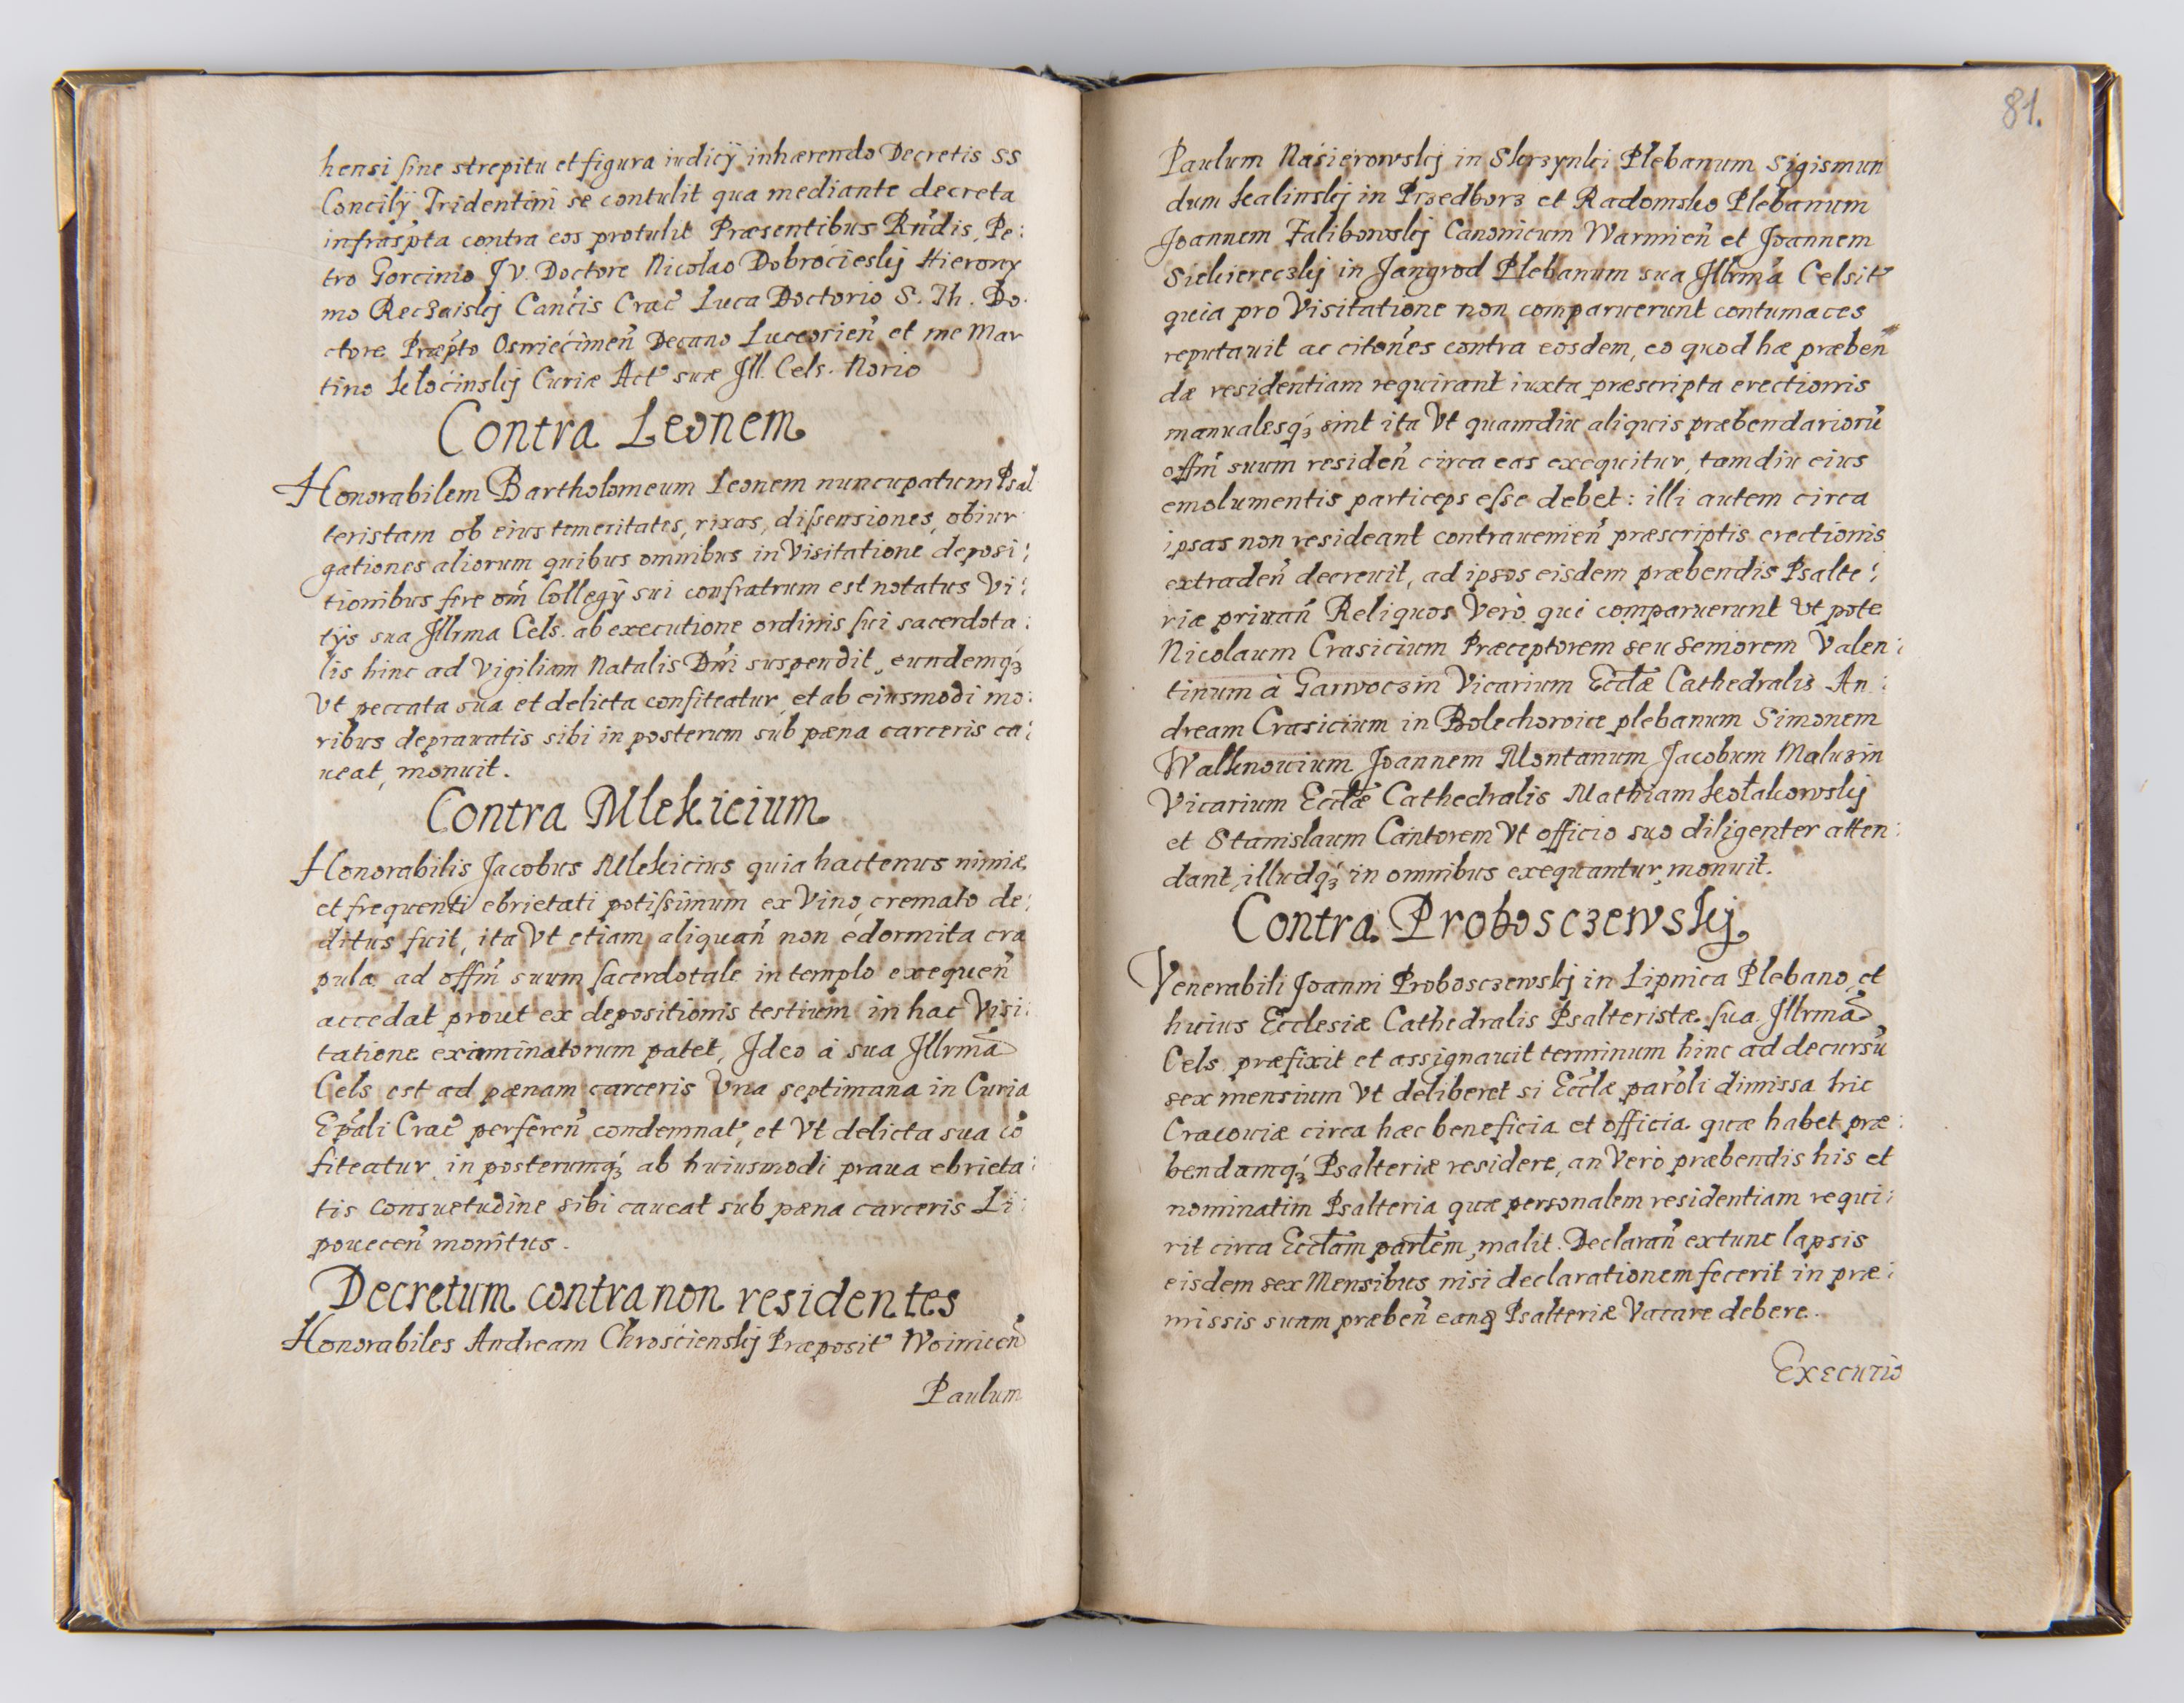 hensi sine strepitu et figura iudicÿ inhærendo Decretis SS
Concilÿ Tridentini se contulit qua mediante decreta
infraspta contra eos protulit Præsentibus Rndis, Pe:
tro Gorcinio J V. Doctore Nicolao Dobrocieskj Hierony
mo Reczaiskj Cancis Crac Luca Doctorio S. Th. Do:
ctore Præpto Osniecimen Decano Luceorien et me Mar
tino Kłocinskj Curiæ Act suæ Jll. Cels. Norio
Contra Leonem
Honorabilem Bartholomeum Leonem nuncupatum Psal
teristam ob eius temeritates, rixas, dissensiones, obiur
gationes aliorum quibus omnibus in Visitatione deposi:
tionibus fere om Collegÿ sui confratrum est notatus Vi:
tÿs sua Jllrma Cels. ab executione ordinis sui sacerdota:
lis hinc ad Vigiliam Natalis Dni suspendit, eundemqȝ
Vt peccata sua et delicta confiteatur et ab eiusmodi mo:
ribus deprauatis sibi in posterum sub pæna carceris ca:
ueat, monuit.
Contra Mlekicium
Honorabilis Jacobus Mlekicius quia hactenus nimiæ
et frequenti ebrietati potissimum ex Vino cremato de:
ditus fuit, ita Vt etiam aliquan non edormita cra
pula ad offm suum sacerdotale in templo exequen
accedat prout ex depositionis testium in hac Visi:
tatione examinatorum patet, Jdeo à sua Jllrma
Cels est ad pænam carceris Vna septimana in Curia
Epali Crac perferen condemnat, et Vt delicta sua cō
fiteatur in posterumqȝ ab huiusmodi praua ebrieta:
tis consuetudine sibi caueat sub pæna carceris Li:
pouecen monitus.
Decretum contra non residentes
Honorabiles Andream Chroscienskj Præposit Woinicen
Paulum
81.
Paulum Nasierowskj in Skrzynki Plebanum Sigismun
dum Kalinskj in Przedborz et Radomsko Plebanum
Joannem Falibowskj Canonicum Warmien et Joannem
Siekiereczkj in Jangrod Plebanum sua Jllrma Celsit
quia pro Visitatione non comparuerunt contumaces
reputauit ac citones contra eosdem, eo quod hæ præben
dæ residentiam requirant iuxta præscripta erectionis
manualesqȝ sint ita Vt quamdiu aliquis præbendariorū
offm suum residen circa eas exequitur, tamdiu eius
emolumentis particeps esse debet: illi autem circa
ipsas non resideant contrauenien præscriptis erectionis
extraden decreuit, ad ipsos eisdem præbendis Psalte:
riæ priuan Reliquos Verò qui comparuerunt Vt pote
Nicolaum Crasicium Præceptorem seu Seniorem Valen:
tinum à Garwoczin Vicarium Ecclæ Cathedralis An:
dream Crasicium in Bolechowice plebanum Simonem
Walknouium Joannem Montanum Jacobum Maluzin
Vicarium Ecclæ Cathedralis Mathiam Kołakowskj
et Stanislaum Cantorem Vt officio suo diligenter atten:
dant, illudqȝ in omnibus exequantur, monuit.
Contra Probosczewskj
Venerabili Joanni Probosczewskj in Lipnica Plebano et
huius Ecclesiæ Cathedralis Psalteristæ sua Jllrma
Cels præfixit et assignauit terminum hinc ad decursū
sex mensium Vt deliberet si Eccla paroli dimissa hic
Cracouiæ circa hæc beneficia et officia quæ habet præ:
bendamqȝ Psalteriæ residere, an Verò præbendis his et
nominatim Psalteria quæ personalem residentiam requi:
rit circa Ecclam parlem, malit. Declaran extunc lapsis
eisdem sex Mensibus nisi declarationem fecerit in præ:
missis suam præben eanq Psalteriæ Vacare debere.
Executio